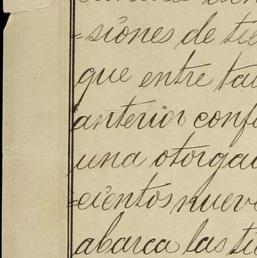 =siones de tie
que entre tan
anterior confo
una otorgad
=cientos nueve
abarca las tie